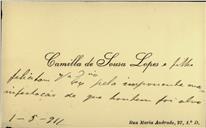 Camilla de Sousa Lopes e filho
felicitam V.ª Ex.ª pela imponente ma
nifestação de que hontem foi alvo
1-8-911
Rua Maria Andrade, 37, 1.º D.